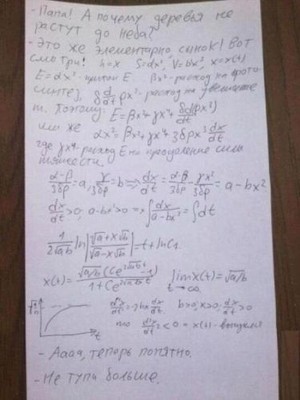 - Папа! А почему деревья не
растут до неба?
- Это же элементарно, сынок! Вот
смотри! h=x S=αx², V=bx³, x=x(t)
E=αx² - приток E. βx² - расход на фото-
синтез, δ d/dt ρx³ - расход на увеличение
m. Поэтому: E=βx²+γx⁴+ δd(ρx³)/dt
или же αx²=βx²+γx⁴+3δρx² dx/dt
где γx⁴ - расход E на преодоление силы
тяжести.
(α-β)/3δρ=a, γ/3δρ=b ⇒ dx/dt = (α-β)/3δρ - γx²/3δρ = a-bx²
dx/dt>0, a-bx²>0 ⇒ ∫dx/(a-bx²)=∫dt
1/(2√ab) ln|(√a+x√b)/(√a-x√b)|=t+lnC₁
x(t)= √a/b (Ce^(2√ab t)-1)/(1+Ce^(2√ab t)) lim x(t)=√a/b
t→∞
d²x/dt²=-2bx dx/dt b>0, x>0, dx/dt>0
то d²x/dt²<0 ⇒ x(t) - выпукла
- Аааа, теперь понятно.
- Не тупи больше.